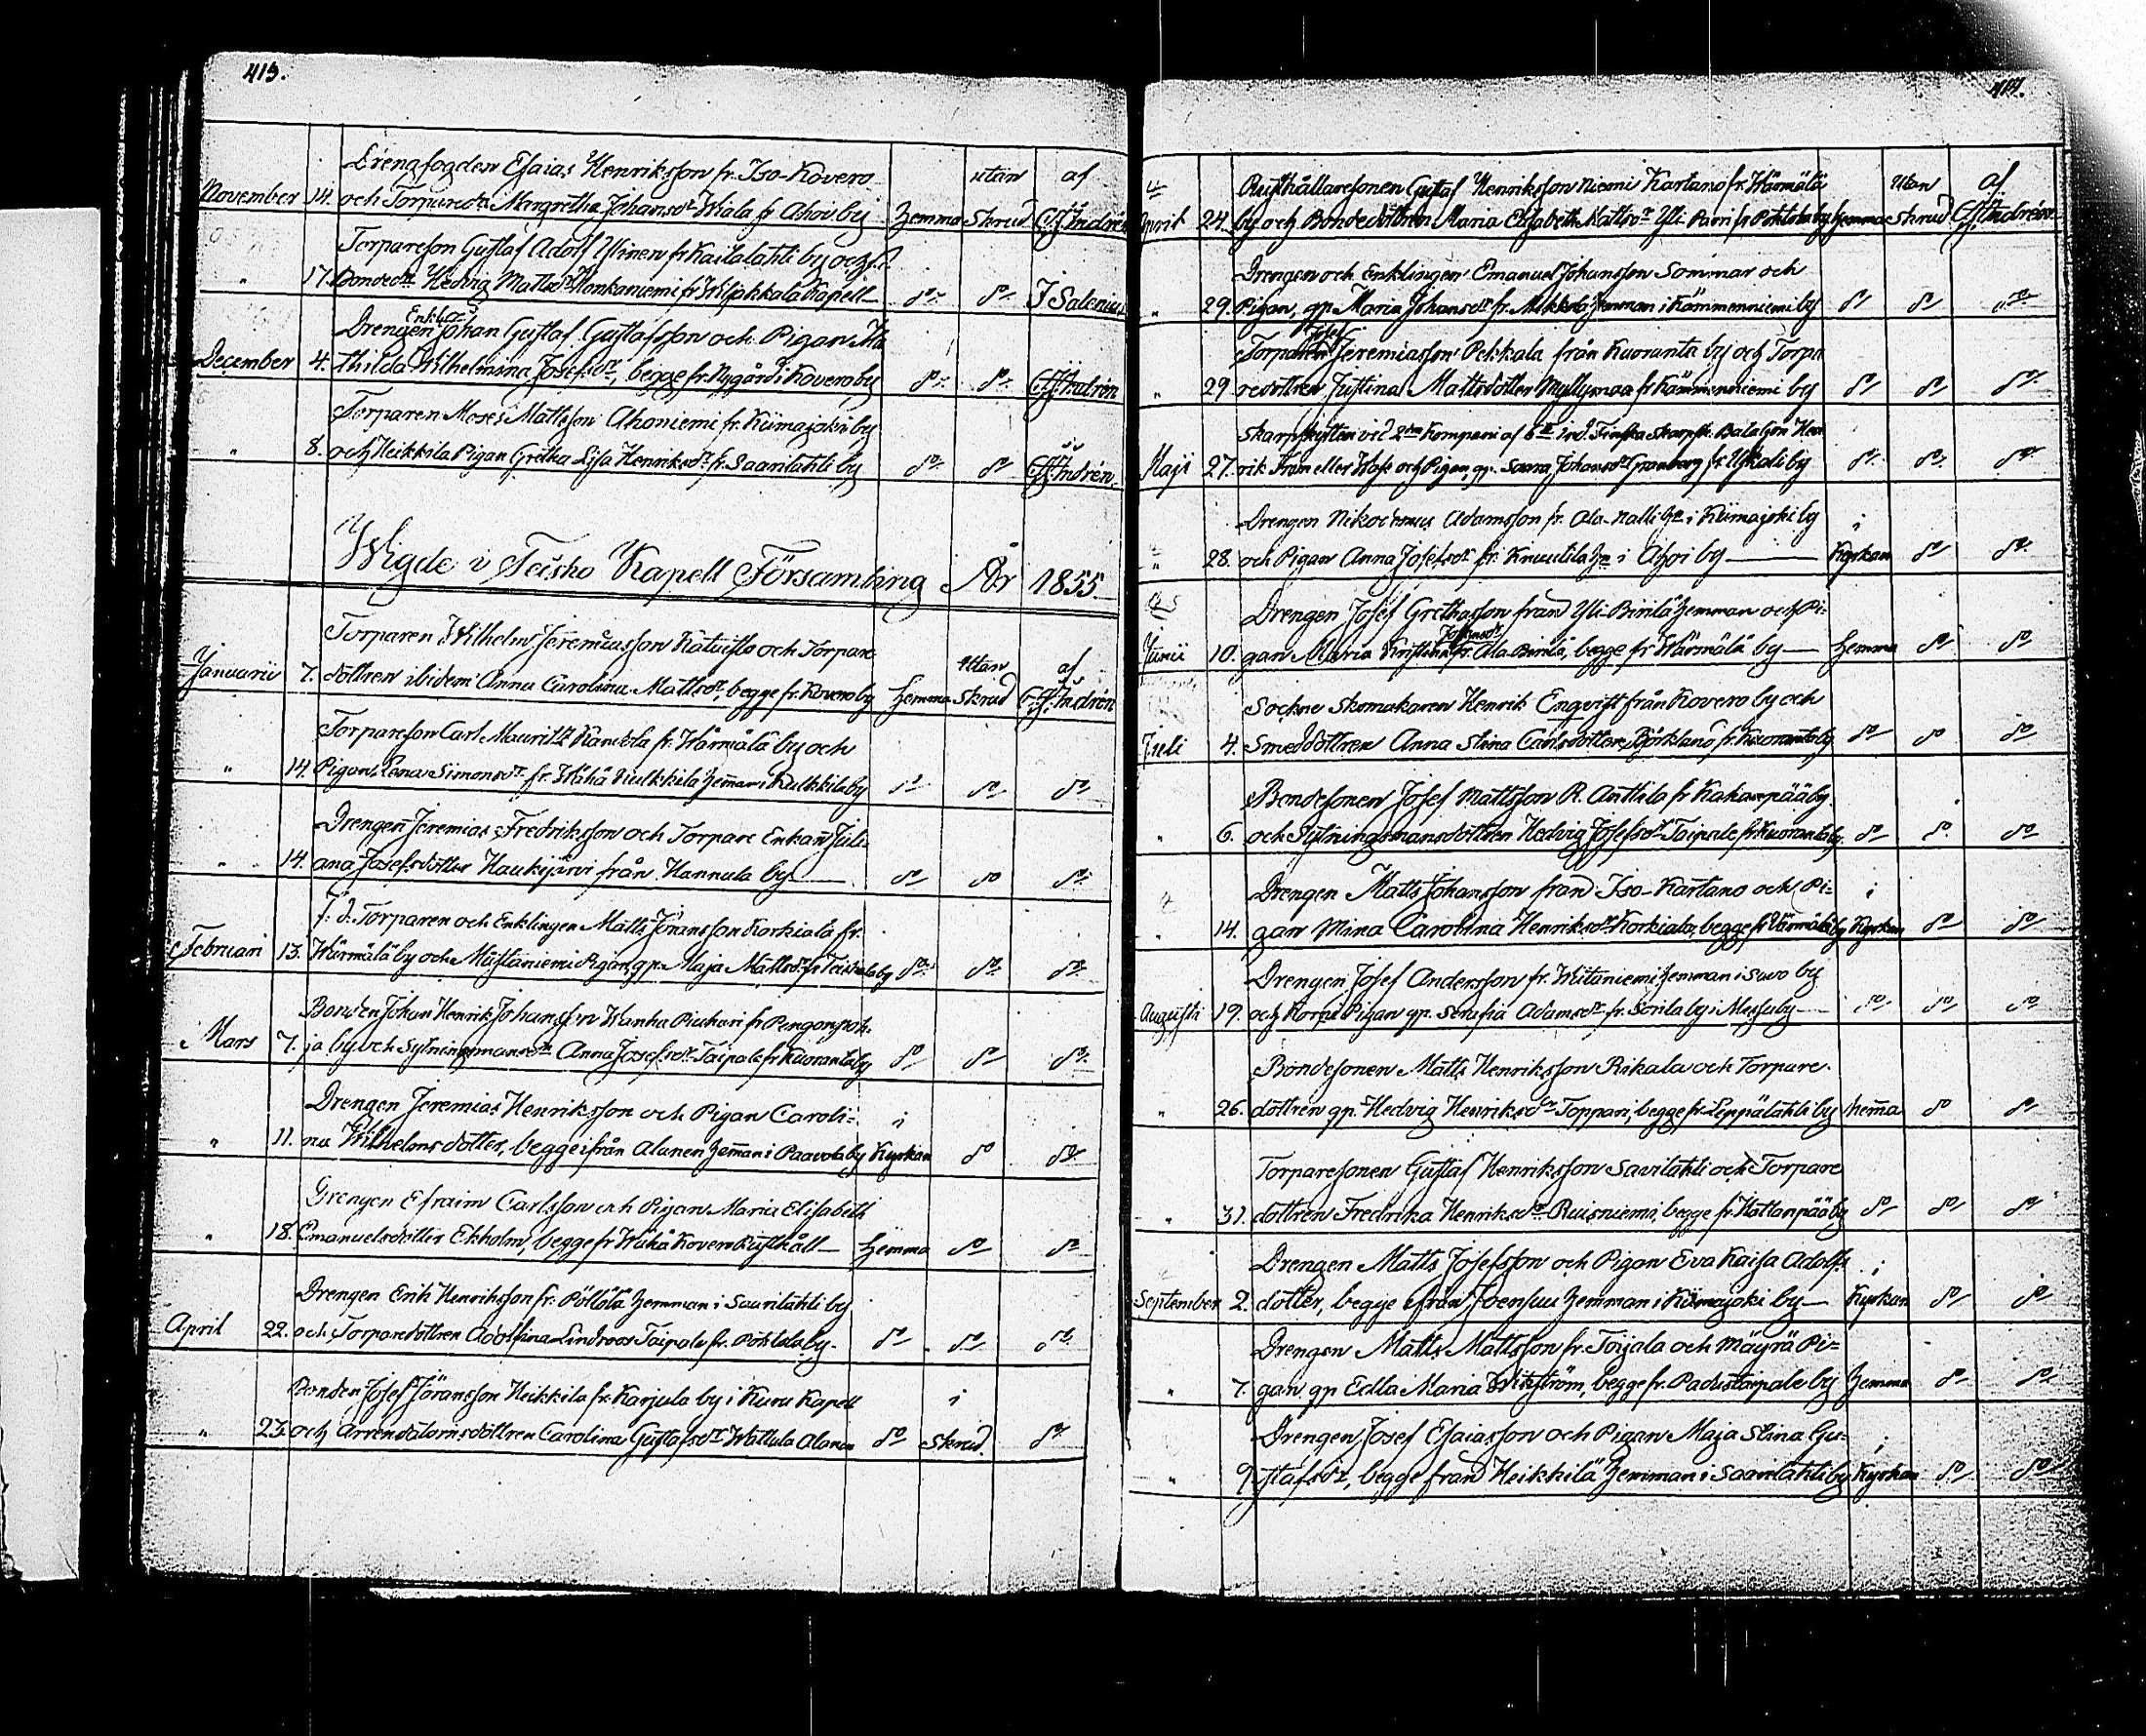 413.
Drengfogden Esaias Henriksson fr. Iso-Kovero utan af
November 14. och Torparedr. Margretha Johansdr Wiala fr Ahois by hemma Skrud C.F. Indrén
Torpareson Gustaf Adolf fr Kailalahti by och fr.
" 17. Bondedr. Hedvig Mattsdr Honkaniemi fr Wiljakkala Kapell — do do J Salenius
Enkl.
Drengen Johan Gustaf Gustafsson och Pigan Ma
December 4. thilda Wilhelmina Josefsdr, begge fr. Nygård i Kovero by do do C.F. Indrén
Torparen Moses Mattsson Ahoniemi fr. Kiimajoki by
" 8. och Heikkila Pigan Gretha Lisa Henriksdr fr. Saarilahti by do do C.F. Indrén.
Wigde i Teisko Kapell Församling År 1855.
Torparen Wilhelm Jeremiasson Katvisto och Torpare utan af
Januarii 7. dottren ibidem Anna Carolina Mattsdr, begge fr. Kovero by hemma Skrud C.F. Indrén
Torpareson Carl Mauritz fr. Wärmälä by och
" 14. Pigan Lena Simonsdr fr. Wähä Kulkkila heman i Kulkkila by do do do
Drengen Jeremias Fredriksson och Torpare Enkan Juli-
" 14. ana Josefsdotter Haukijärvi från Hannula by — do do do
f. d. Torparen och Enklingen Matts Jöransson Korkiala fr.
Februari 13. Wärmälä by och Mustaniemi Pigan, gp. Maja Mattsdr fr Teiskola by do do do
Bonden Johan Henrik Johansson Wanha Piukari fr Pengonpoh-
Mars 7. ja by och Sytningsmansdr Anna Josefsdr Taipale fr Kuoranta by do do do
Drengen Jeremias Henriksson och Pigan Caroli- i
" 11. na Wilhelmsdotter, begge ifrån Alanen heman i Paavola by Kyrkan do do
Drengen Efraim Carlsson och Pigan Maria Elisabeth
" 18. Emanuelsdotter Ekholm, begge fr Wähä Kovero Rusthåll — hemma do do
Drengen Erik Henriksson fr. Pöllölä hemman i Saarilahti by
April 22. och Torparedottren Adolfina Lindroos Taipale fr. Pohtola by. do do do
Bonden Josef Jöransson Heikkila fr. Karjula by i Kuru Kapell i
" 23. och Arrendatorsdottren Carolina Gustafsdr Wattula Alanen do Skrud. do
414.
Rusthållaresonen Gustaf Henriksson Niemi Kartano fr. Wärmälä utan af
April 24. by och Bondedottren Maria Elisabeth Mattsdr Yli Pavri fr Pohtola by hemma Skrud C.F. Indrén
Drengen och Enklingen Emanuel Johansson Sommar och
" 29. Pigan, gp. Maria Johansdr fr. Mikkola hemman i Kämmenniemi by do do do
Josef
Torparen Jeremiasson Pekkala från Kuoranta by och Torpa
" 29 redottren Justina Mattsdotter Myllymaa fr Kämmenniemi by do do do
Skarpskytten vid 2dra Kompani af 6te ind. Finska Skarpsk. Bataljon Hen
Maji 27. rik Fram eller Wase och Pigan, gp. Saara Johansdr Granberg fr. Uskali by do do do
Drengen Nikodemus Adamsson fr. Ala-Nalli hn i Kiimajoki by i
" 28. och Pigan Anna Josefsdr fr. Knuutila hn i Ahoi by — Kyrkan do do
Drengen Josef Grethasson från Yli Pirilä hemman och Pi-
Johansdr
Junii 10. gan Maria Kristina fr. Ala Pirilä, begge fr Wärmälä by — hemma do do
Sockne Skomakaren Henrik Engqvist från Kovero by och
Juli 4. Smeddottren Anna Stina Carlsdotter Björklund fr. Kuoranta by do do do
Bondesonen Josef Mattsson R. Anttila fr Kaharpää by.
" 6. och Sytningsmansdottren Hedvig Josefsdr Taipale fr Kuoranta by. do do do
Drengen Matts Johansson från Iso-Kartano och Pi- i
" 14. gan Mina Carolina Henriksdr Korkiala, begge fr Wärmälä by Kyrkan do do
Drengen Josef Andersson fr. Witaniemi hemman i Suvo by
Augusti 19. och Korpi Pigan gp. Serafia Adamsdr fr. Sorila by i Messuby — do do do
Bondesonen Matts Henriksson Rikala och Torpare-
" 26. dottren gp. Hedvig Henriksdr Toppari, begge fr Leppälahti by hemma do do
Torparesonen Gustaf Henriksson Savilahti och Torpare
" 31. dottren Fredrika Henriksdr Ruisniemi, begge fr Hattanpää by do do do
Drengen Matts Josefsson och Pigan Eva Kaisa Adolfs i
September 2. dotter, begge ifrån Joensuu hemman i Kiimajoki by — Kyrkan do do
Drengen Matts Mattsson fr. Toijala och Mäyrä Pi-
" 7. gan gp Edla Maria Wikström, begge fr. Padustaipale by hemma do do
Drengen Josef Esaiasson och Pigan Maja Stina Gu- i
" 9. stafsdr, begge från Heikkilä hemman i Saarilahti by Kyrkan do do